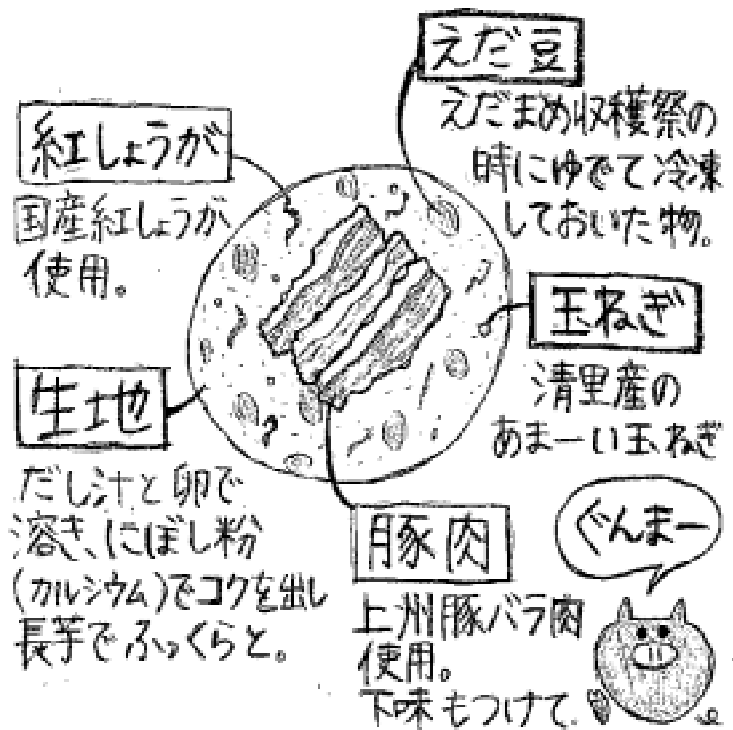 えだ豆
えだまめ収穫祭の
時にゆでて冷凍
しておいた物。
紅しょうが
国産紅しょうが
使用。
玉ねぎ
清里産の
あまーい玉ねぎ
生地
だし汁と卵で
溶き、にぼし粉
(カルシウム)でコクを出し
長芋でふっくらと。
豚肉
上州豚バラ肉
使用。
下味もつけて
ぐんまー